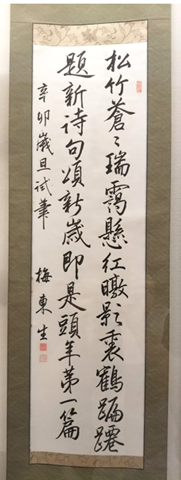 松竹蒼々瑞靄懸紅暾影裏鶴蹁躚
題新詩句頌新歳即是頭年第一篇
辛卯歳旦試筆
梅東生